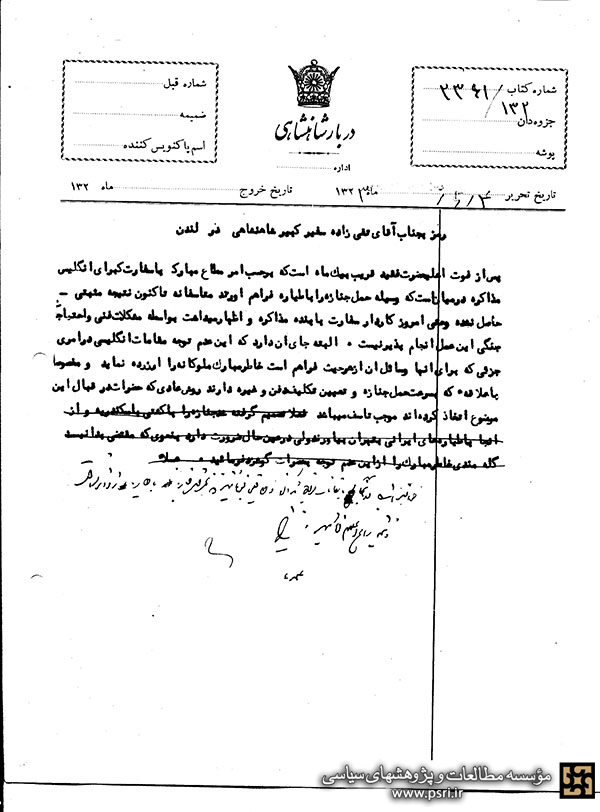 شماره کتاب ۲۳۶۱/۱۳۲
جزوه‌دان
پوشه
دربار شاهنشاهی
اداره
شماره قبل
ضمیمه
اسم پاکنویس کننده
تاریخ تحریر ماه ۱۳۲
تاریخ خروج ماه ۱۳۲
رمز بجناب آقای تقی زاده سفیر کبیر شاهنشاهی در لندن
پس از فوت اعلیحضرت فقید قریب بیك ماه است که برحسب امر مطاع مبارک با سفارت کبرای انگلیس
مذاکره در میان است که وسیله حمل جنازه را با طیاره فراهم آورند متاسفانه تاکنون نتیجه مثبتی –
حاصل نشده وحتی امروز کاردار سفارت با بنده مذاکره و اظهار میداشت بواسطه مشکلات فنی واحتیاجات
جنگی این عمل انجام پذیر نیست ٠ البته جای آن دارد که این عدم توجه مقامات انگلیسی در امری
جزئی که برای آنها وسائل آن از هر حیث فراهم است خاطر مبارك ملوکانه را آزرده نماید و مخصوصا
با علاقه که بسرعت حمل جنازه و تعیین تکلیف دفن و غیره دارند روش عادی که حضرات در قبال این
موضوع اتخاذ کرده‌اند موجب تاسف میباشد فعلا تصمیم گرفته شد جنازه را با کشتی باسکندریه و از
آنجا با طیاره‌های ایرانی بتهران بیاورند ولی در عین حال ضرورت دارد بنحوی که مقتضی بدانید
گله مندی خاطر مبارك را از این عدم توجه بحضرات گوشزد فرمائید ٠
مؤسسه مطالعات و پژوهشهای سیاسی
www.psri.ir